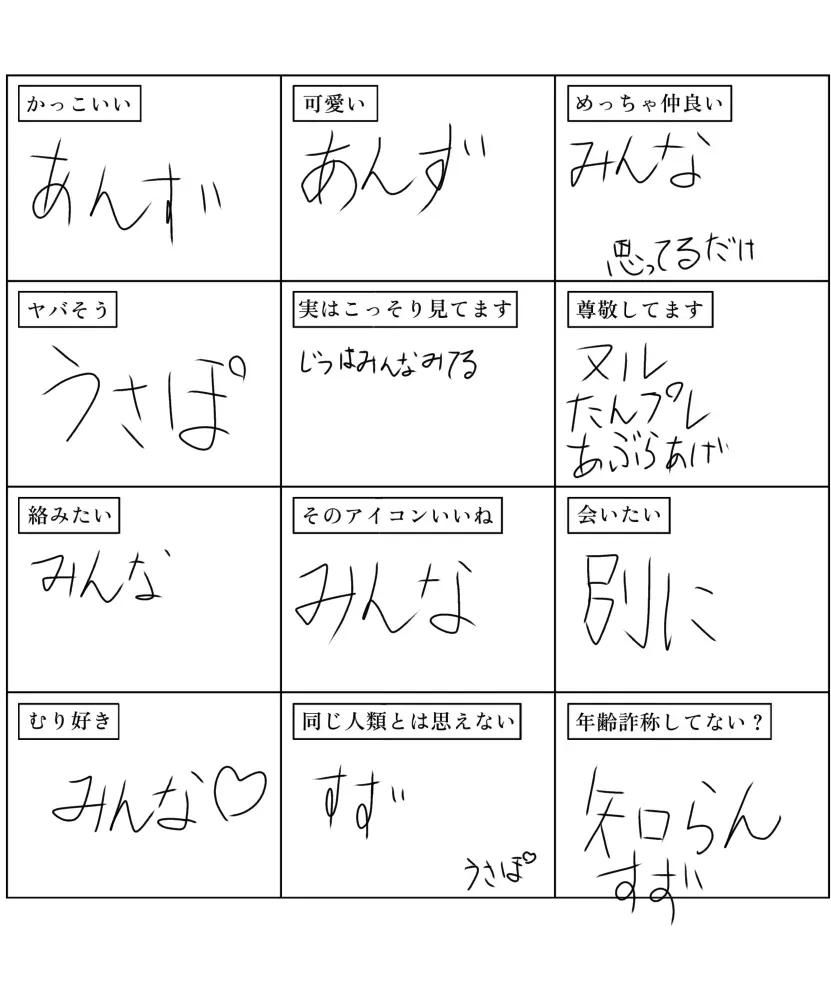 かっこいい
あんず
可愛い
あんず
めっちゃ仲良い
みんな
思ってるだけ
ヤバそう
うさぽ
実はこっそり見てます
じつはみんなみてる
尊敬してます
ヌル
たんプレ
あぶらあげ
絡みたい
みんな
そのアイコンいいね
みんな
会いたい
別に
むり好き
みんな♡
同じ人類とは思えない
すず
うさぽ
年齢詐称してない？
知らん
すず